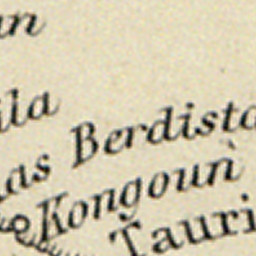 un
ila
as Berdista
Kongoun
Tauri